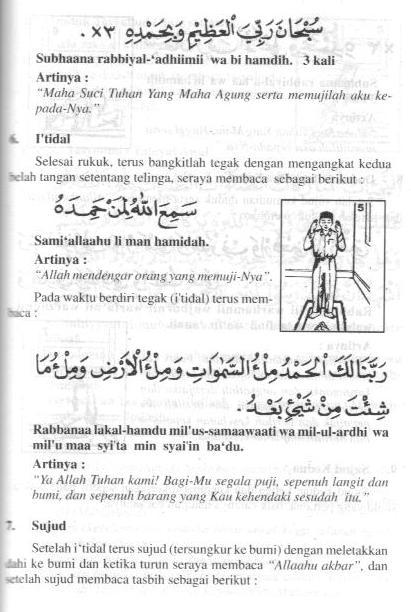 سُبْحَانَ رَبِّيَ الْعَظِيْمِ وَبِحَمْدِهِ ×٣ .
Subhaana rabbiyal-‘adhiimii wa bi hamdih. 3 kali
Artinya :
“Maha Suci Tuhan Yang Maha Agung serta memujilah aku ke-
pada-Nya.”
6. I'tidal
Selesai rukuk, terus bangkitlah tegak dengan mengangkat kedua
belah tangan setentang telinga, seraya membaca sebagai berikut :
سَمِعَ اللهُ لِمَنْ حَمِدَهُ
5
Sami‘allaahu li man hamidah.
Artinya :
“Allah mendengar orang yang memuji-Nya”.
Pada waktu berdiri tegak (i'tidal) terus mem-
baca :
رَبَّنَا لَكَ الْحَمْدُ مِلْءُ السَّمٰوَاتِ وَمِلْءُ الْاَرْضِ وَمِلْءُ مَا
شِئْتَ مِنْ شَيْئٍ بَعْدُ .
Rabbanaa lakal-hamdu mil'us-samaawaati wa mil-ul-ardhi wa
mil'u maa syi'ta min syai'in ba‘du.
Artinya :
“Ya Allah Tuhan kami! Bagi-Mu segala puji, sepenuh langit dan
bumi, dan sepenuh barang yang Kau kehendaki sesudah itu.”
7. Sujud
Setelah i‘tidal terus sujud (tersungkur ke bumi) dengan meletakkan
dahi ke bumi dan ketika turun seraya membaca “Allaahu akbar”, dan
setelah sujud membaca tasbih sebagai berikut :